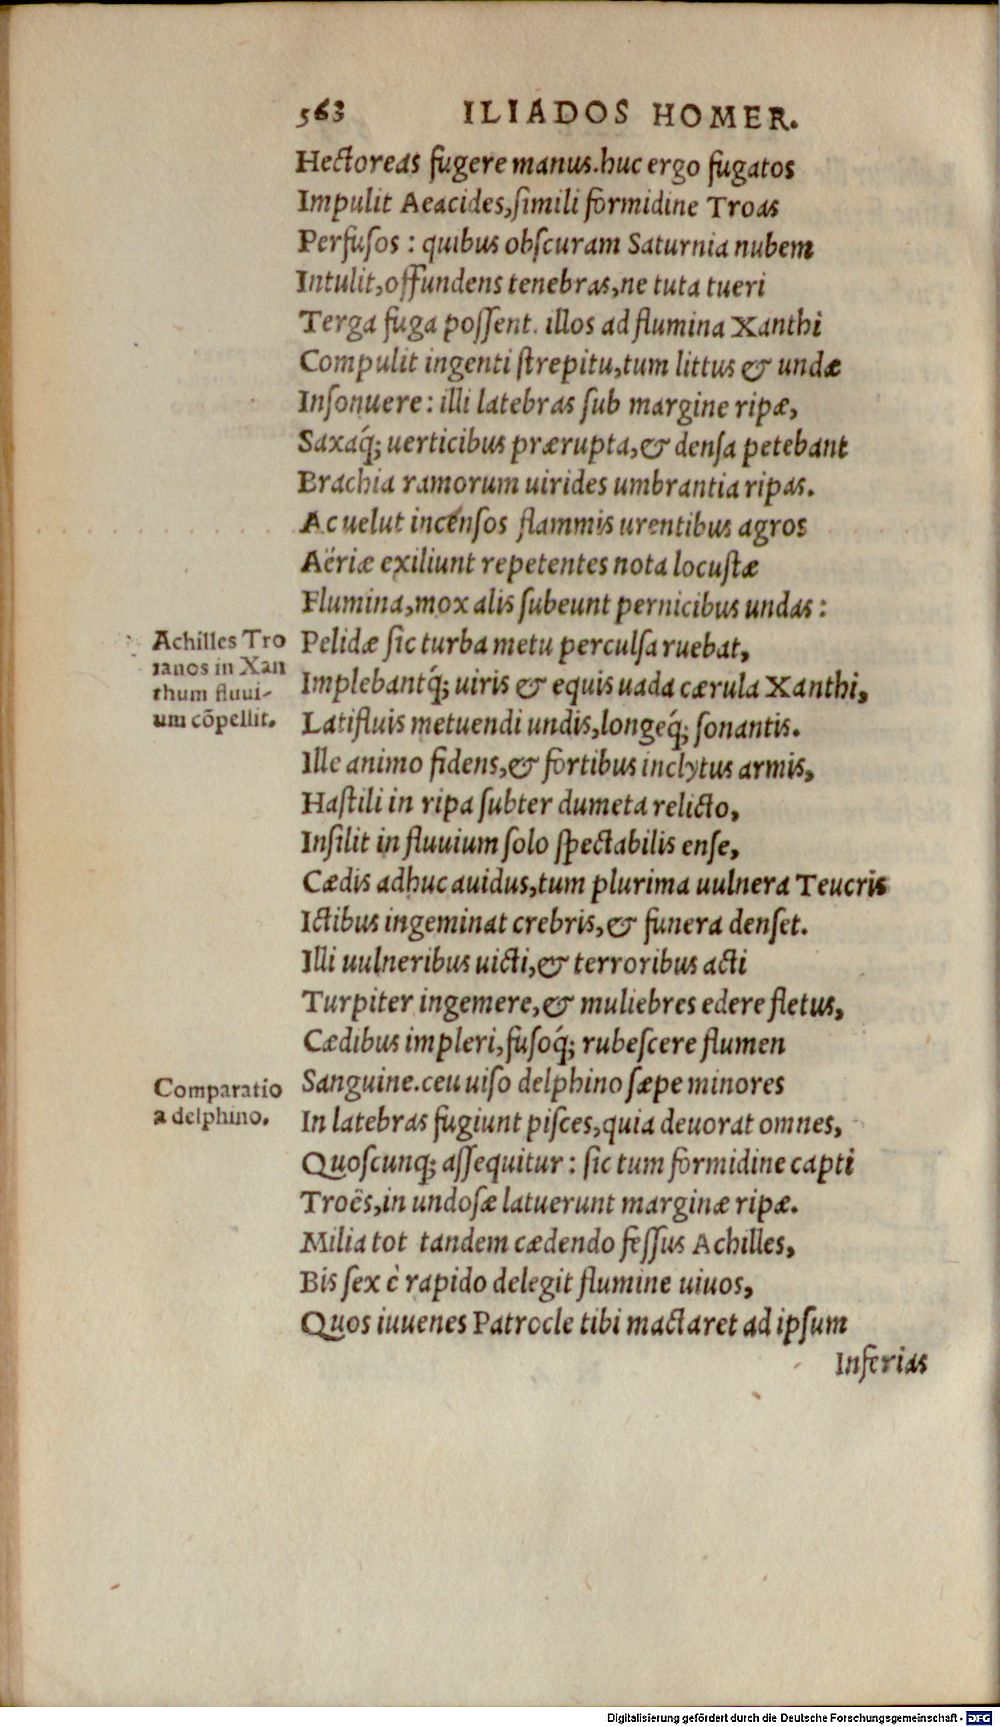 563 ILIADOS HOMER.
Hectoreas fugere manus.huc ergo fugatos
Impulit Aeacides,simili formidine Troas
Perfusos : quibus obscuram Saturnia nubem
Intulit,offundens tenebras,ne tuta tueri
Terga fuga possent. illos ad flumina Xanthi
Compulit ingenti strepitu,tum littus & undæ
Insonuere : illi latebras sub margine ripæ,
Saxaq́; uerticibus prærupta,& densa petebant
Brachia ramorum uirides umbrantia ripas.
Ac uelut incensos flammis urentibus agros
Aëriæ exiliunt repetentes nota locustæ
Flumina,mox alis subeunt pernicibus undas :
Achilles Tro
ianos in Xan
thum fluui-
um cõpellit.
Pelidæ sic turba metu perculsa ruebat,
Implebantq́; uiris & equis uada cærula Xanthi,
Latifluis metuendi undis,longeq́; sonantis.
Ille animo fidens,& fortibus inclytus armis,
Hastili in ripa subter dumeta relicto,
Insilit in fluuium solo spectabilis ense,
Cædis adhuc auidus,tum plurima uulnera Teucris
Ictibus ingeminat crebris,& funera denset.
Illi uulneribus uicti,& terroribus acti
Turpiter ingemere,& muliebres edere fletus,
Cædibus impleri,fusoq́; rubescere flumen
Comparatio
a delphino.
Sanguine.ceu uiso delphino sæpe minores
In latebras fugiunt pisces,quia deuorat omnes,
Quoscunq; assequitur : sic tum formidine capti
Troẽs,in undosæ latuerunt marginæ ripæ.
Milia tot tandem cædendo fessus Achilles,
Bis sex è rapido delegit flumine uiuos,
Quos iuuenes Patrocle tibi mactaret ad ipsum
Inferias
Digitalisierung gefördert durch die Deutsche Forschungsgemeinschaft - DFG